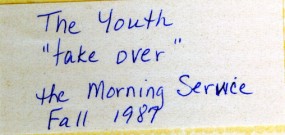 The Youth
"take over"
the Morning Service
Fall 1987